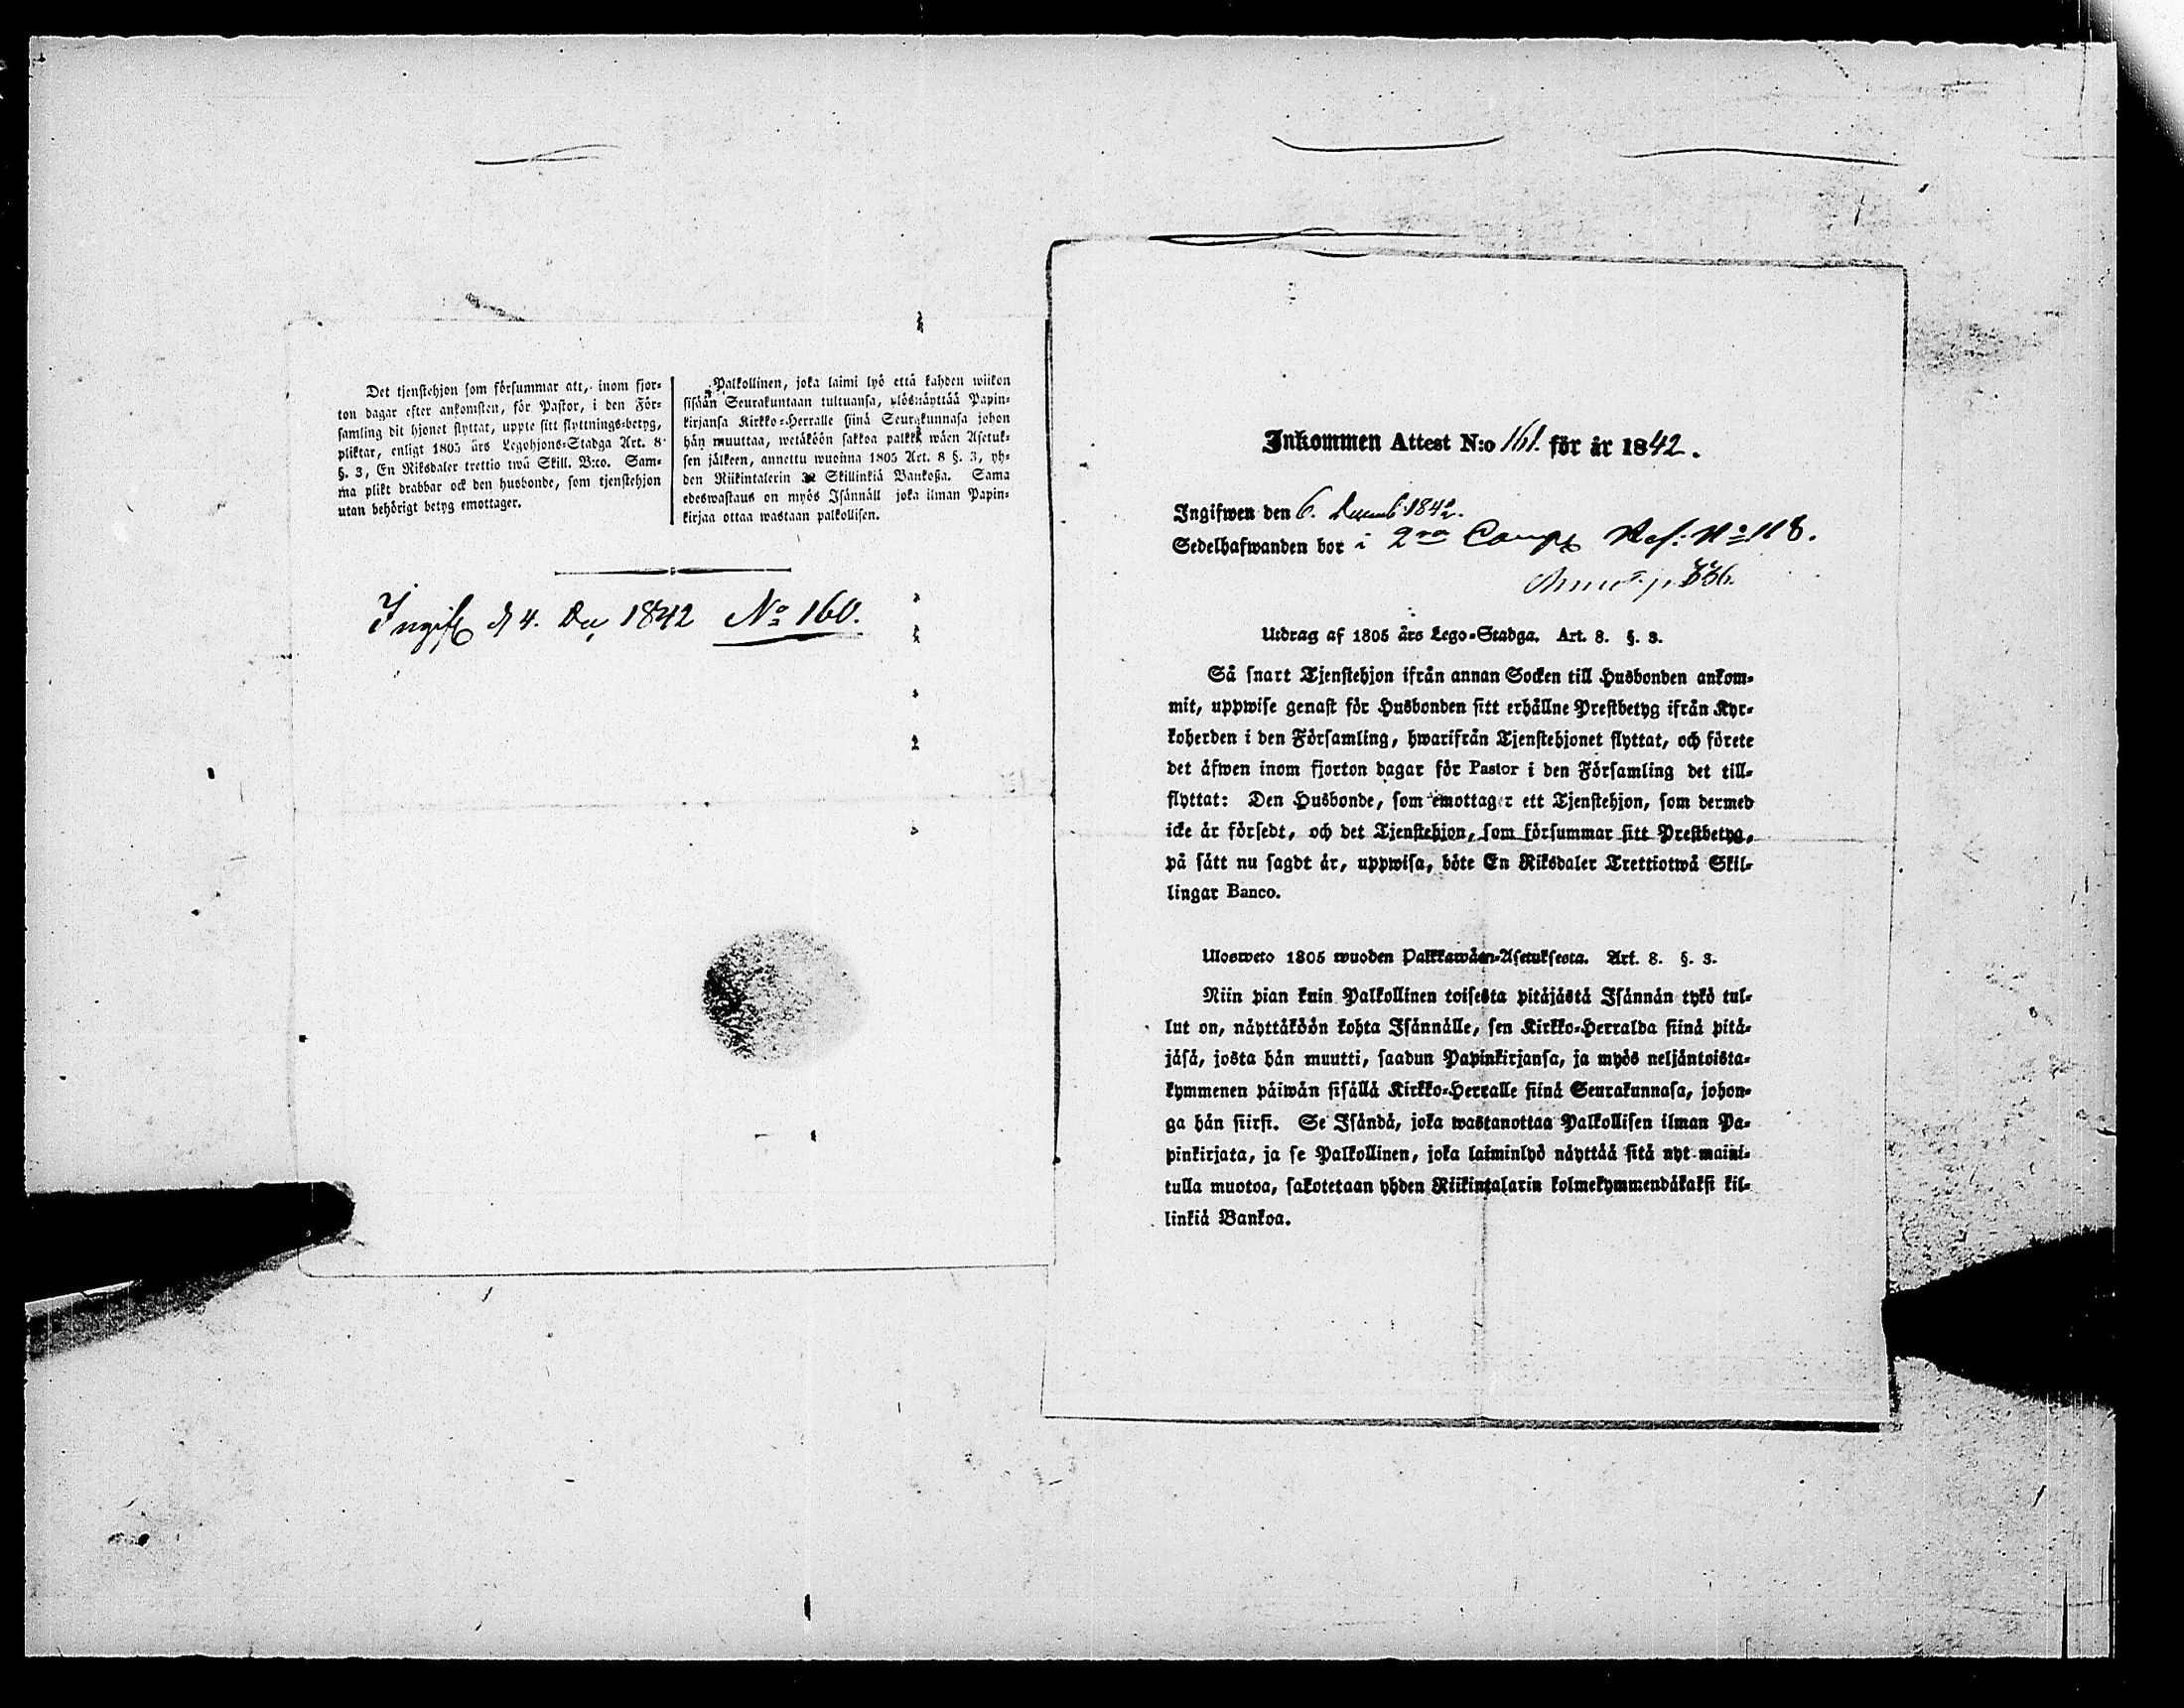 Det tjenstehjon som försummar att, inom fjor-
ton dagar efter ankomsten, för Pastor, i den För-
samling dit hjonet flyttat, uppte sitt flyttnings-betyg,
pliktar, enligt 1805 års Legohjons-Stadga Art. 8
§. 3, En Riksdaler trettio twå Skill. B:co. Sam-
ma plikt drabbar ock den husbonde, som tjenstehjon
utan behörigt betyg emottager.
Palkollinen, joka laimi lyö että kahden wiikon
sisään Seurakuntaan tultuansa, ylösnäyttää Papin-
kirjansa Kirkko-Herralle siinä Seurakunnasa johon
hän muuttaa, wetäköön sakkoa palkka wäen Asetuk-
sen jälkeen, annettu wuonna 1805 Art. 8 §. 3, yh-
den Riikintalerin 32 Skillinkiä Bankoßa. Sama
edeswastaus on myös Isännäll joka ilman Papin-
kirjaa ottaa wastaan palkollisen.
Ingifv d 4. Dec 1842 No 160.
Inkommen Attest N:o 161. för år 1842.
Ingifwen den 6. Decemb 1842.
Sedelhafwanden bor i 2ra Comp No 118.
p. 336.
Utdrag af 1805 års Lego-Stadga. Art. 8. §. 3.
Så snart Tjenstehjon ifrån annan Socken till Husbonden ankom-
mit, uppwise genast för Husbonden sitt erhållne Prestbetyg ifrån Kyr-
koherden i den Församling, hwarifrån Tjenstehjonet flyttat, och förete
det äfwen inom fjorton dagar för Pastor i den Församling det till-
flyttat: Den Husbonde, som emottager ett Tjenstehjon, som dermed
icke är försedt, och det Tjenstehjon, som försummar sitt Prestbetyg,
på sätt nu sagdt är, uppwisa, böte En Riksdaler Trettiotwå Skil-
lingar Banco.
Ulosweto 1805 wuoden Palkkawäen-Asetuksesta. Art. 8. §. 3.
Niin pian kuin Palkollinen toisesta pitäjästä Isännän tykö tul-
lut on, näyttäköön kohta Isännälle, sen Kirkko-Herralda siinä pitä-
jäsä, josta hän muutti, saadun Papinkirjansa, ja myös neljäntoista-
kymmenen päiwän sisällä Kirkko-Herralle siinä Seurakunnasa, johon-
ga hän siirsi. Se Isändä, joka wastanottaa Palkollisen ilman Pa-
pinkirjata, ja se Palkollinen, joka laiminlyö näyttää sitä nyt maini-
tulla muotoa, sakotetaan yhden Riikintalarin kolmekymmendäkaksi kil-
linkiä Bankoa.